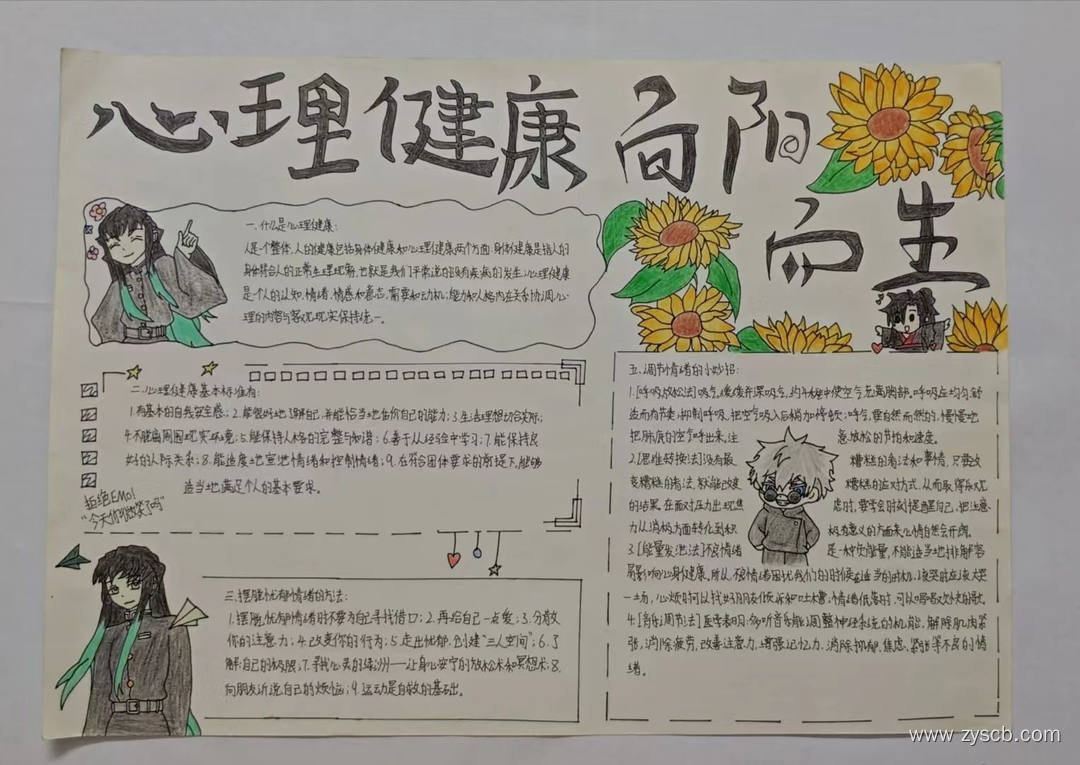 心理健康 向阳
而生
一.什么是心理健康:
人是一个整体,人的健康包括身体健康和心理健康两个方面.身体健康是指人的
身体符合人的正常生理现象,也就是我们平常说的没有疾病的发生.心理健康
是个人的认知,情绪,情感和意志,需要和动机;能力和人格内在关系协调,心
理的内容与客观现实保持统一。
二.心理健康基本标准有:
1.有基本的自我安全感;2.能很好地了解自己,并能恰当地估价自己的能力;3.生活理想切合实际;
4.不脱离周围现实环境;5.能保持人格的完整与和谐;6.善于从经验中学习;7.能保持良
好的人际关系;8.能适度地宣泄情绪和控制情绪;9.在符合团体要求的前提下,能够
适当地满足个人的基本要求。
拒绝EMo!
“今天你微笑了吗”
三.摆脱忧郁情绪的方法:
1.摆脱忧郁情绪时不要为自己寻找借口;2.再给自己一点爱;3.分散
你的注意力;4.改变你的行为;5.走出忧郁,创建“三人空间”;6.了
解自己的极限;7.寻找心灵的绿洲——让身心安宁的放松术和冥想术;8.
向朋友诉说自己的烦恼;9.运动是自救的基础。
五.调节情绪的小妙招:
1.[呼吸放松法]吸气,缓缓并深吸气,约4秒钟使空气充满胸部.呼吸应均匀,舒
适而有节奏,抑制呼吸,把空气吸入后稍加停顿;呼气,要自然而然的,慢慢地
把肺底的空气呼出来,注意放松的节拍和速度。
2.[思维转换法]没有最糟糕的看法和事情,只要改
变糟糕的看法,就能改变糟糕的应对方式,从而取得乐观
的结果.在面对压力出现焦虑时,要学会时刻提醒自己,把注意
力从消极方面转化到积极,有意义的方面来,心情自然会开朗。
3.[能量发泄法]不良情绪是一种负能量,不能适当地排解容
易影响心身健康。所以,不良情绪困扰我们的时候,在适当的时机,该哭时应该大哭
一场,心烦时可以找好朋友倾诉和吐槽;情绪低落时,可以唱唱欢快的歌。
4.[音乐调节法]医学表明:多听音乐能调整神经系统的机能,解除肌肉紧
张,消除疲劳,改善注意力,增强记忆力,消除抑郁,焦虑,紧张等不良的情
绪。
www.zyscb.com